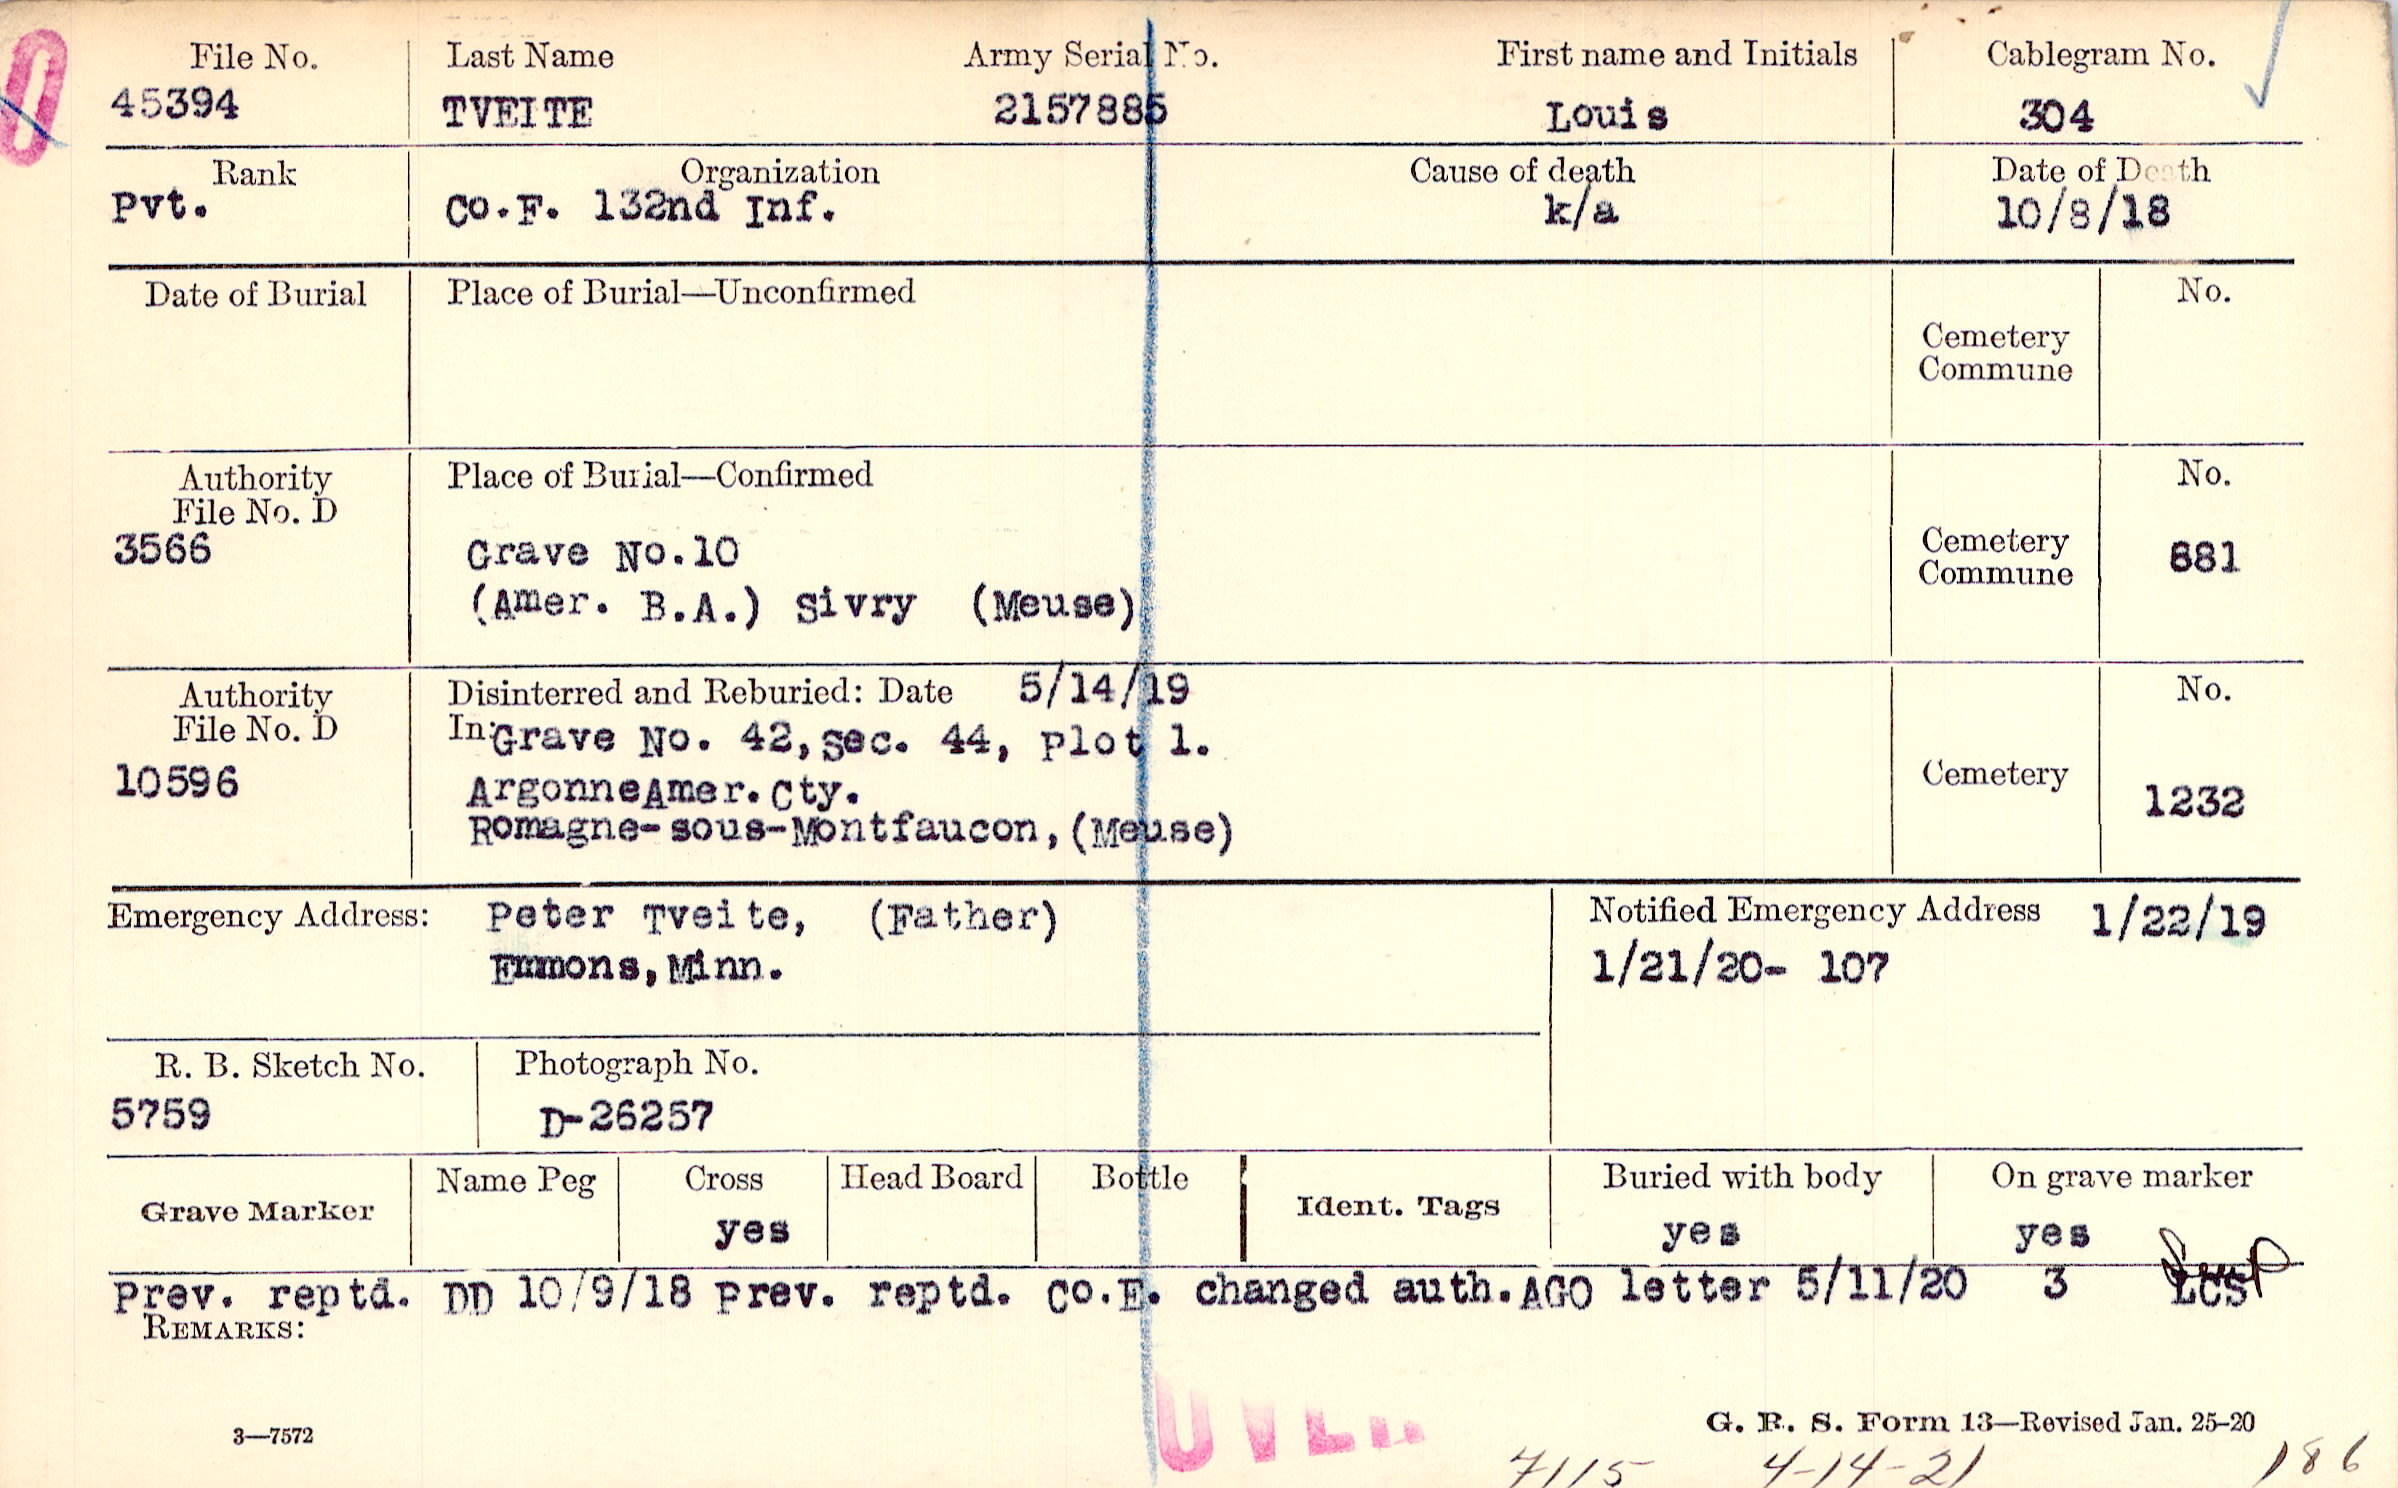 File No. Last Name Army Serial No. First name and Initials Cablegram No.
45394 TVEITE 2157885 Louis 304
Rank Organization Cause of death Date of Death
Pvt. Co.F. 132nd Inf. k/a 10/8/18
Date of Burial Place of Burial—Unconfirmed No.
Cemetery
Commune
Authority Place of Burial—Confirmed No.
File No. D
3566 Grave No.10 Cemetery 881
Commune
(Amer. B.A.) Sivry (Meuse)
Authority Disinterred and Reburied: Date 5/14/19 No.
File No. D In: Grave No. 42, Sec. 44, Plot 1.
10596 Argonne Amer. Cty. Cemetery 1232
Romagne-sous-Montfaucon, (Meuse)
Emergency Address: Peter Tveite, (Father) Notified Emergency Address 1/22/19
Emmons, Minn. 1/21/20- 107
R. B. Sketch No. Photograph No.
5759 D-26257
Grave Marker Name Peg Cross Head Board Bottle Ident. Tags Buried with body On grave marker
yes yes yes
Prev. reptd. DD 10/9/18 Prev. reptd. Co.E. changed auth. AGO letter 5/11/20 3 LCS
REMARKS:
OVER
3—7572 G. R. S. Form 13—Revised Jan. 25-20
7115 4-14-21 186